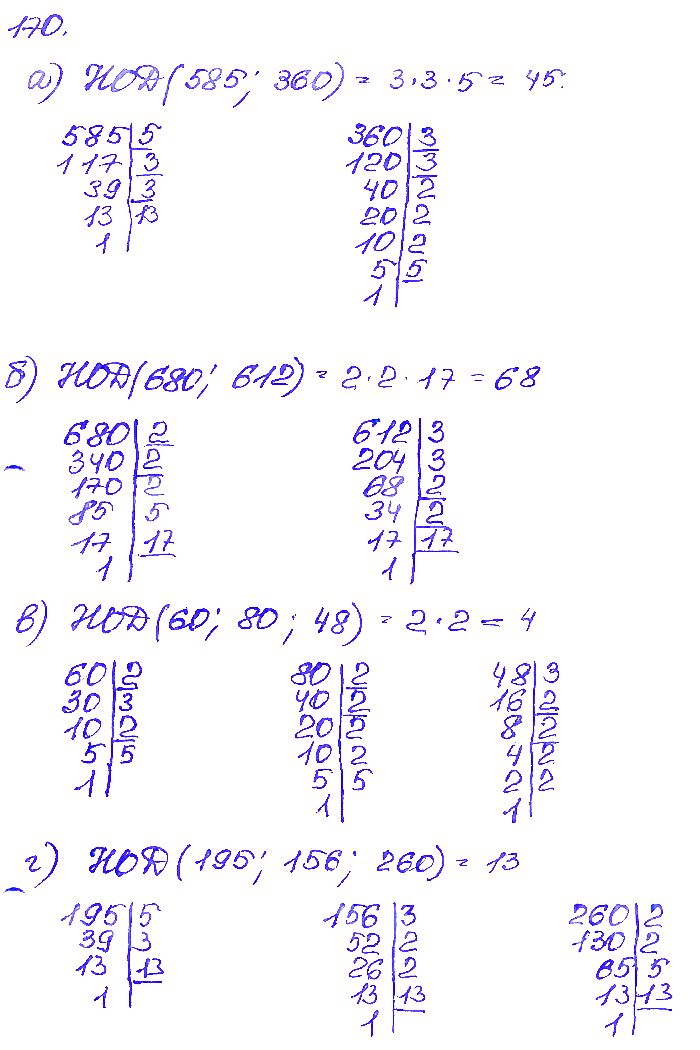 170.
а) НОД(585; 360) = 3·3·5 = 45.
585|5 360|3
117|3 120|3
39|3 40|2
13|13 20|2
1| 10|2
5|5
1|
б) НОД(680; 612) = 2·2·17 = 68
680|2 612|3
340|2 204|3
170|2 68|2
85|5 34|2
17|17 17|17
1| 1|
в) НОД(60; 80; 48) = 2·2 = 4
60|2 80|2 48|3
30|3 40|2 16|2
10|2 20|2 8|2
5|5 10|2 4|2
1| 5|5 2|2
1| 1|
г) НОД(195; 156; 260) = 13
195|5 156|3 260|2
39|3 52|2 130|2
13|13 26|2 65|5
1| 13|13 13|13
1| 1|